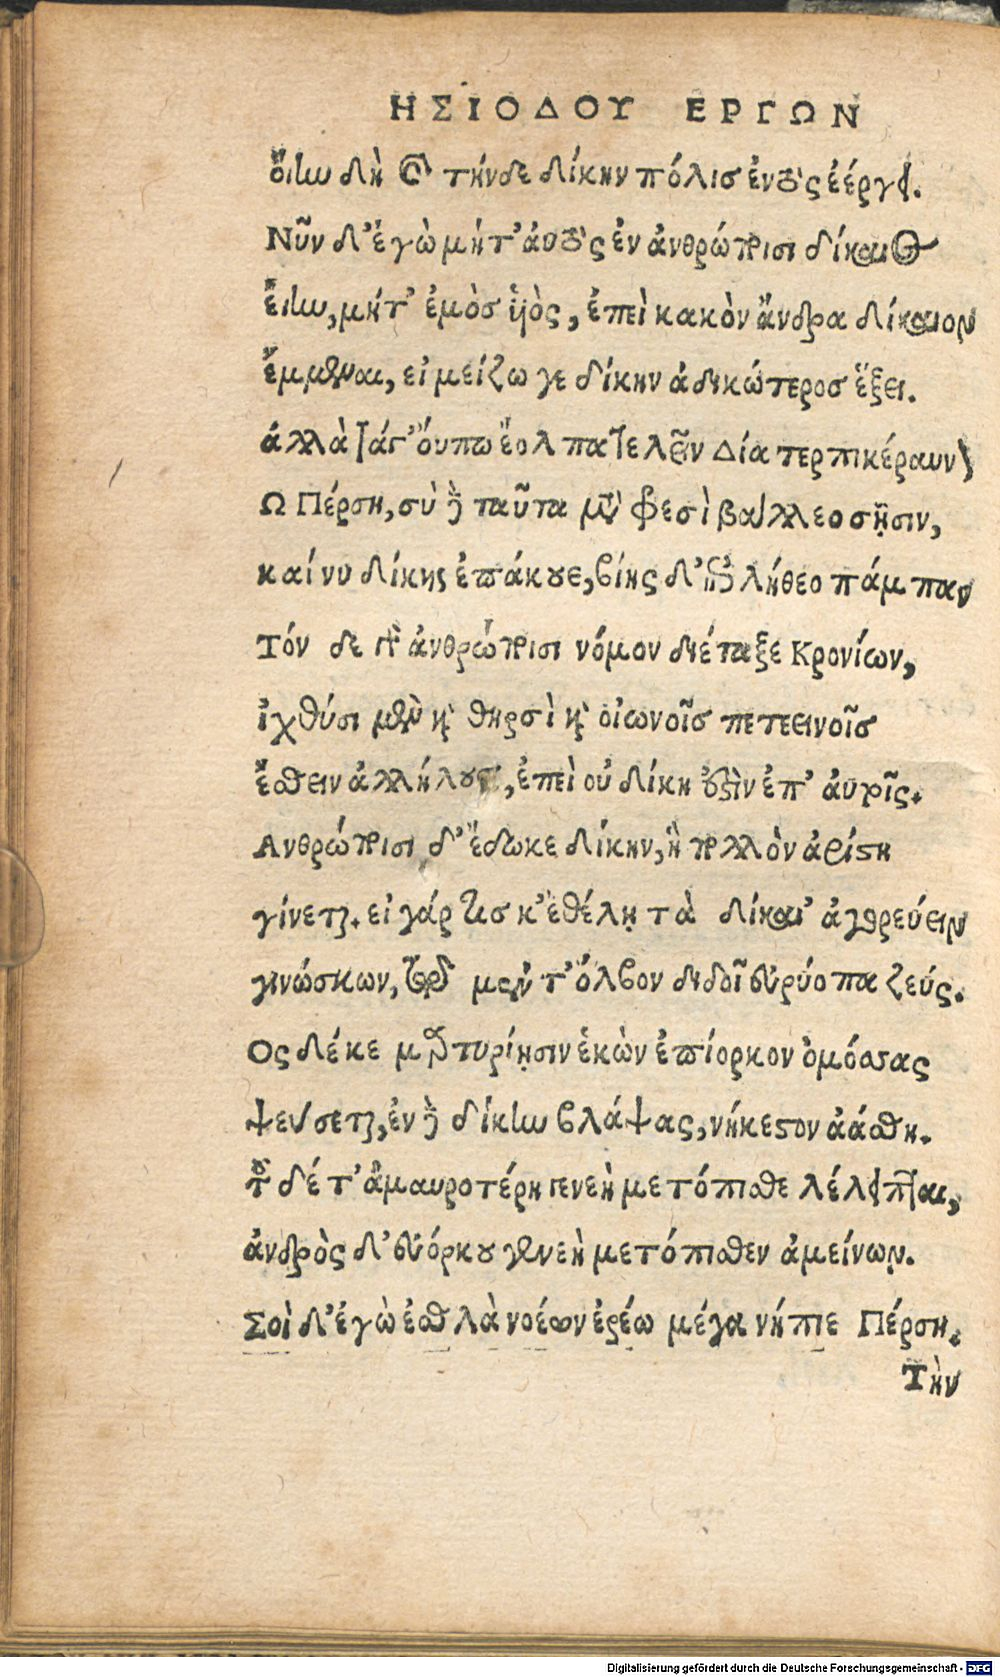 ΗΣΙΟΔΟΥ ΕΡΓΩΝ
ὅιlω δὴ καὶ τήνδε δίκην πόλισ ἐντὸς ἐέργει.
Νῦν δ' ἐγὼ μήτ' ἀυτὸς ἐν ἀνθρώποισι δίκαιος
ἔιlω, μήτ' ἐμὸσ ὑιὸς, ἐπεὶ κακὸν ἄνδρα δίκαιον
ἔμμεναι, εἰ μείζω γε δίκην ἀδικώτεροσ ἕξει.
ἀλλὰ τάγ' ὄυπω ἔολπα τελεῖν Δία τερπικέραυνον
Ω Πέρση, σὺ δὲ ταῦτα μετὰ φρεσὶ βάλλεο σῇσιν,
καί νυ δίκης ἐπάκουε, βίης δ' ἐπιλήθεο πάμπαν
Τόν δε γὰρ ἀνθρώποισι νόμον διέταξε Κρονίων,
ἰχθύσι μὲν καὶ θηρσὶ καὶ οἰωνοῖσ πετεεινοῖσ
ἔσθειν ἀλλήλους, ἐπεὶ οὐ δίκη ἐστὶν ἐπ' ἀυτοῖς.
Ανθρώποισι δ' ἔδωκε δίκην, ἣ πολλὸν ἀρίστη
γίνεται. εἰ γάρ τισ κ' ἐθέλῃ τὰ δίκαι' ἀγορεύειν
γινώσκων, τῷ μέν τ' ὄλβον διδοῖ εὐρύοπα ζεύς.
Ος δέ κε μαρτυρίῃσιν ἑκὼν ἐπίορκον ὀμόσσας
ψεύσεται, ἐν δὲ δίκlω βλάψας, νήκεστον ἀάσθη.
τοῦ δέ τ' ἀμαυροτέρη γενεὴ μετόπισθε λέλειπται,
ἀνδρὸς δ' εὐόρκου γενεὴ μετόπισθεν ἀμείνων.
Σοὶ δ' ἐγὼ ἐσθλὰ νοέων ἐρέω μέγα νήπιε Πέρση.
Τὴν
Digitalisierung gefördert durch die Deutsche Forschungsgemeinschaft - DFG